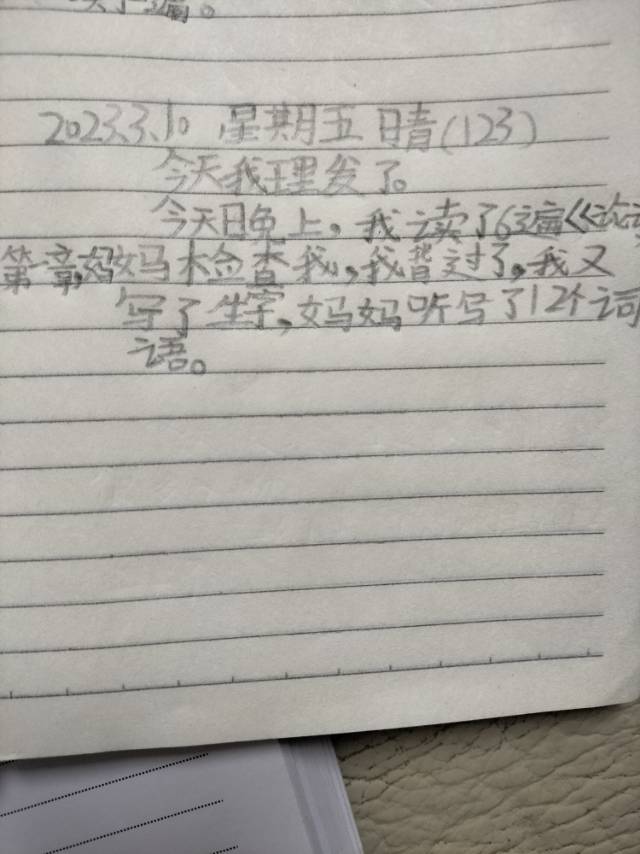 遍。
2023.3.10 星期五 晴(123)
今天我理发了。
今天晚上,我读了6遍《论语
第一章,妈妈检查我,我背过了,我又
写了生字,妈妈听写了12个词
语。